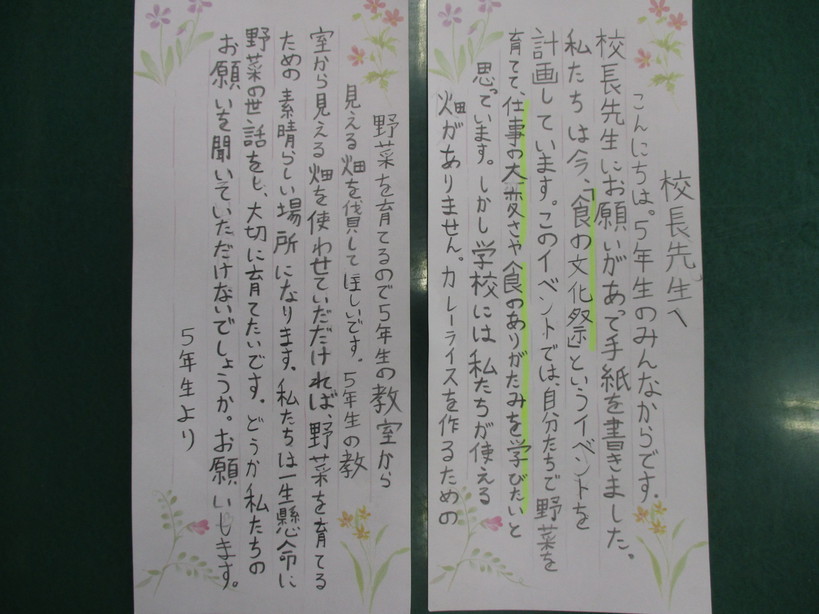 校長先生へ
こんにちは。5年生のみんなからです。
校長先生にお願いがあって手紙を書きました。
私たちは今、「食の文化祭」というイベントを
計画しています。このイベントでは、自分たちで野菜を
育てて、仕事の大変さや食のありがたみを学びたいと
思っています。しかし学校には私たちが使える
畑がありません。カレーライスを作るための
野菜を育てるので5年生の教室から
見える畑を貸してほしいです。5年生の教
室から見える畑を使わせていだだければ、野菜を育てる
ための素晴らしい場所になります。私たちは一生懸命に
野菜の世話をし、大切に育てたいです。どうか私たちの
お願いを聞いていただけないでしょうか。お願いします。
5年生より